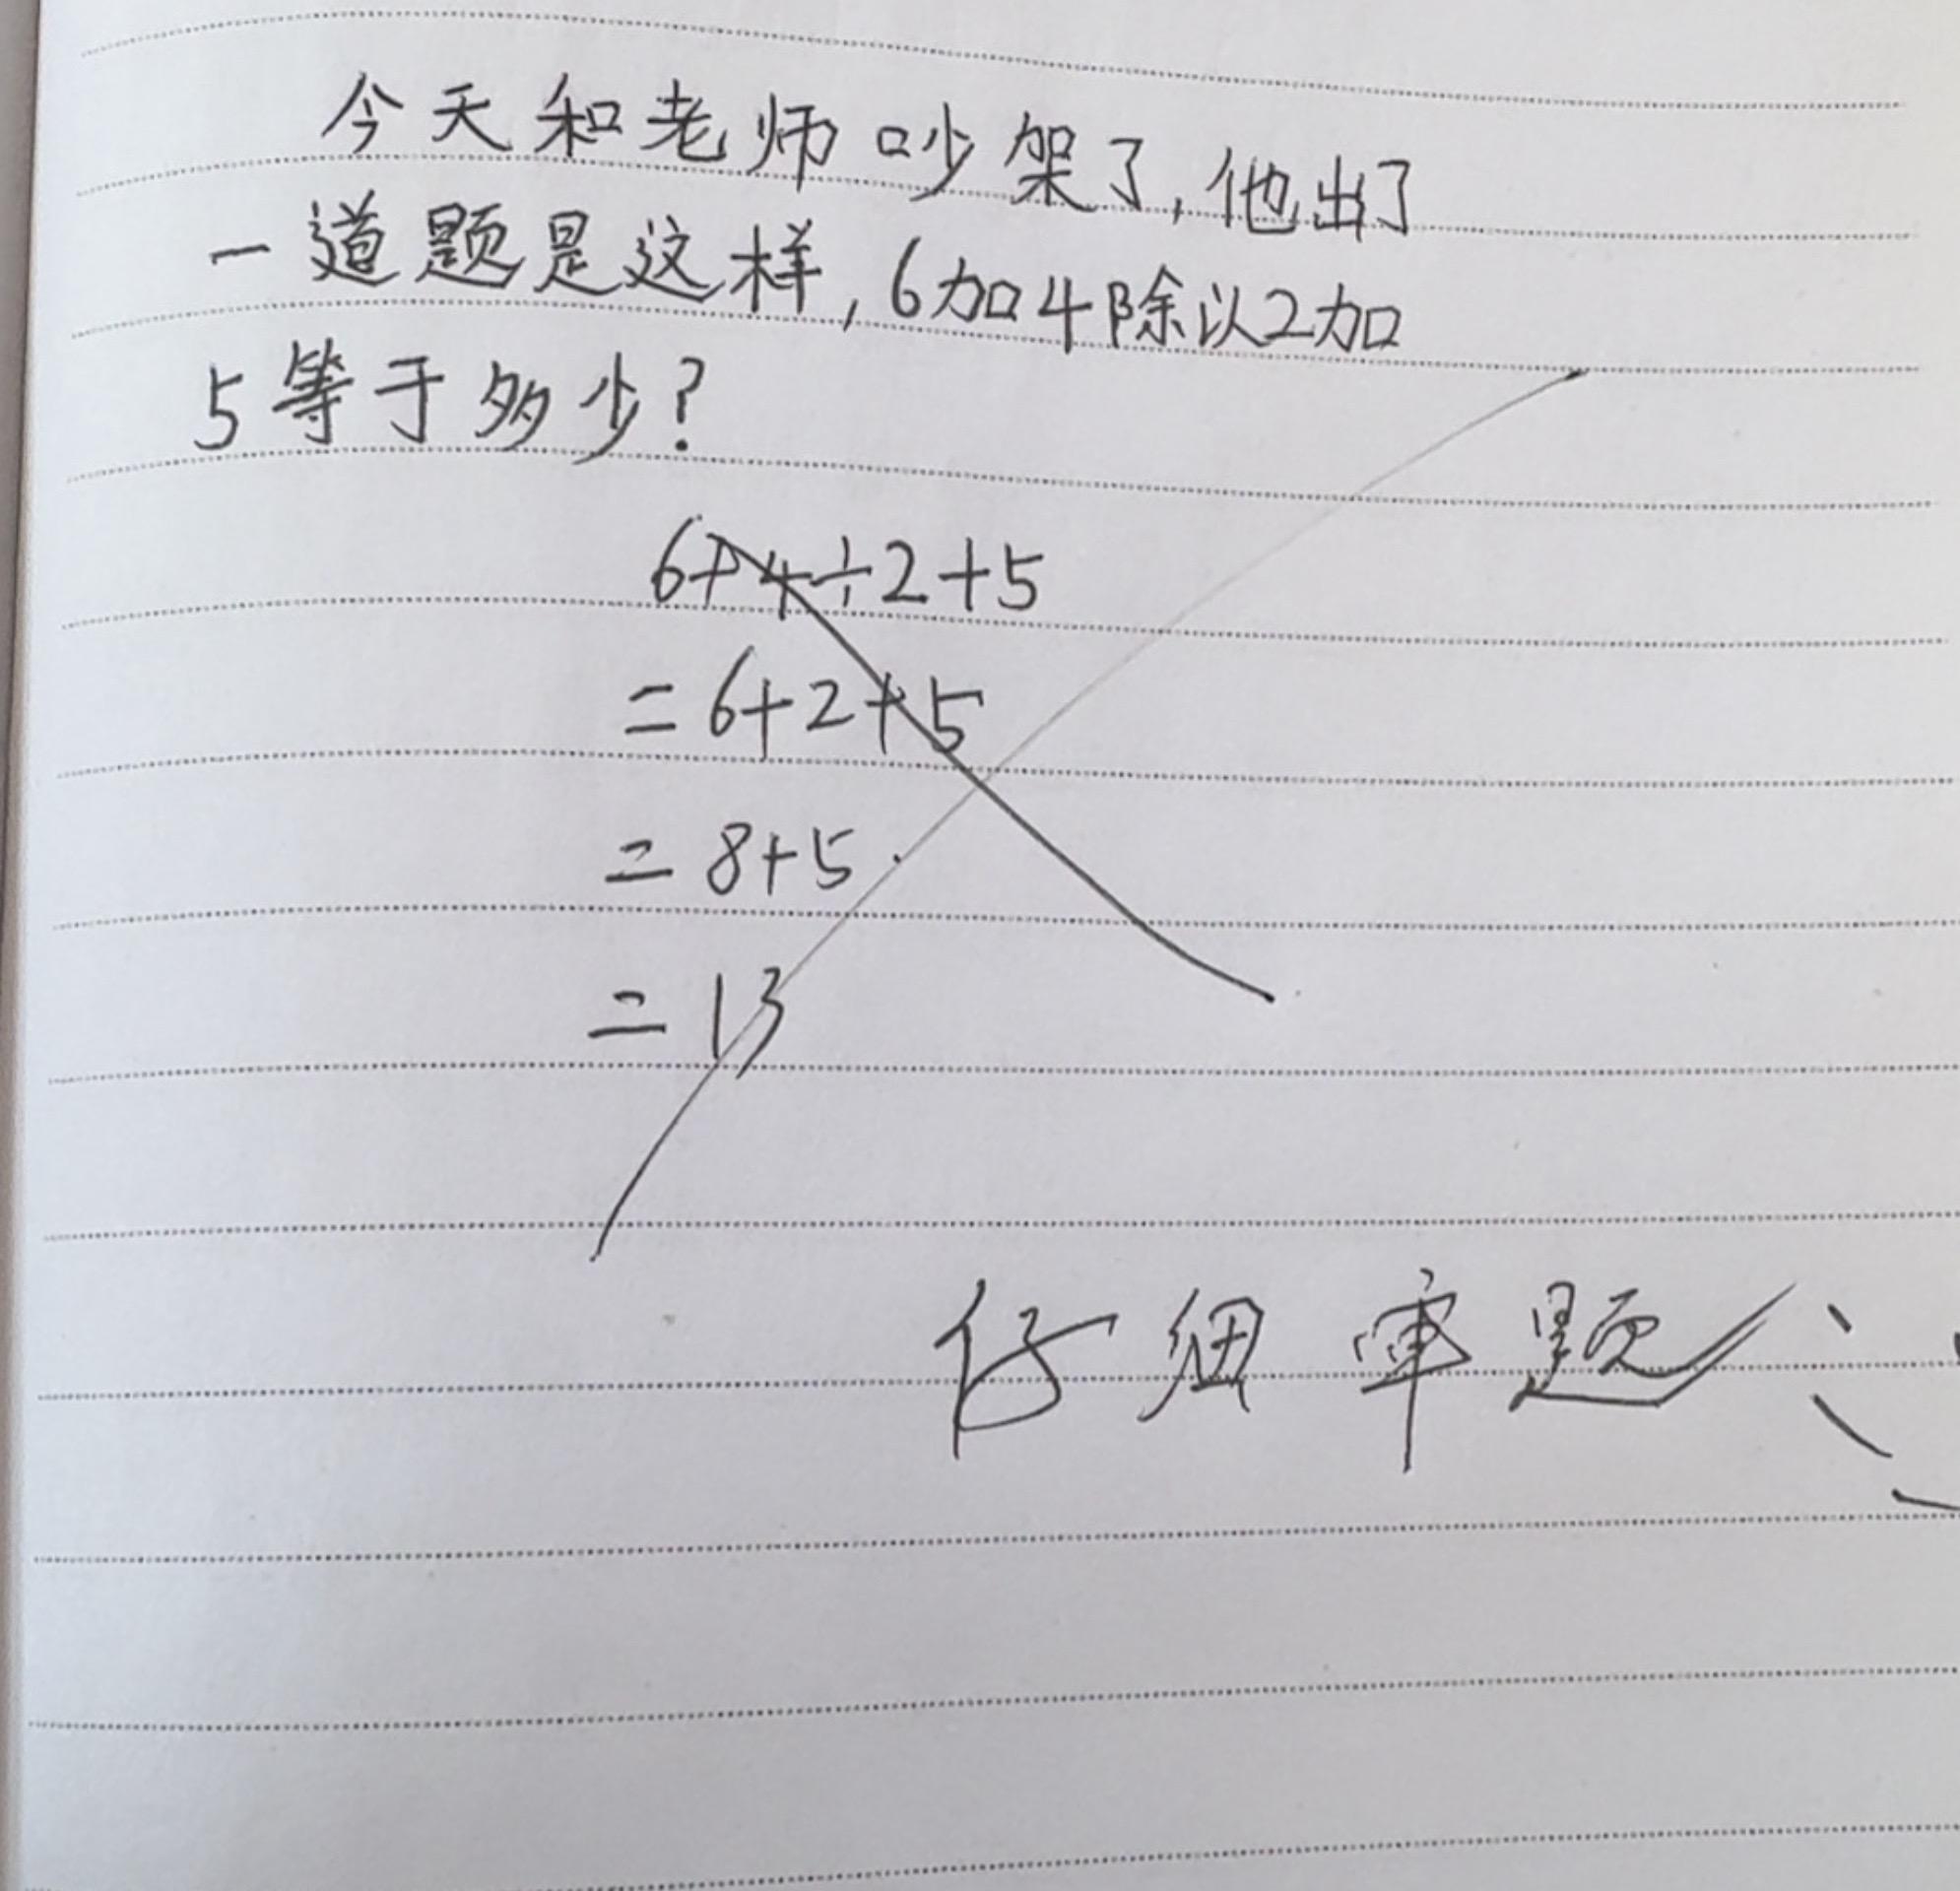 今天和老师吵架了,他出了
一道题是这样,6加4除以2加
5等于多少?
6+4÷2+5
=6+2+5
=8+5
=13
仔细审题